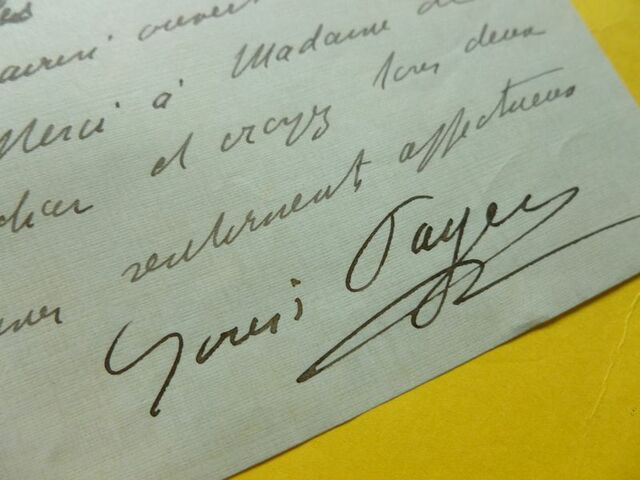 es
ouvert
Merci à Madame de
et croyez tous deux
sentiments affectueux
Louis Payen